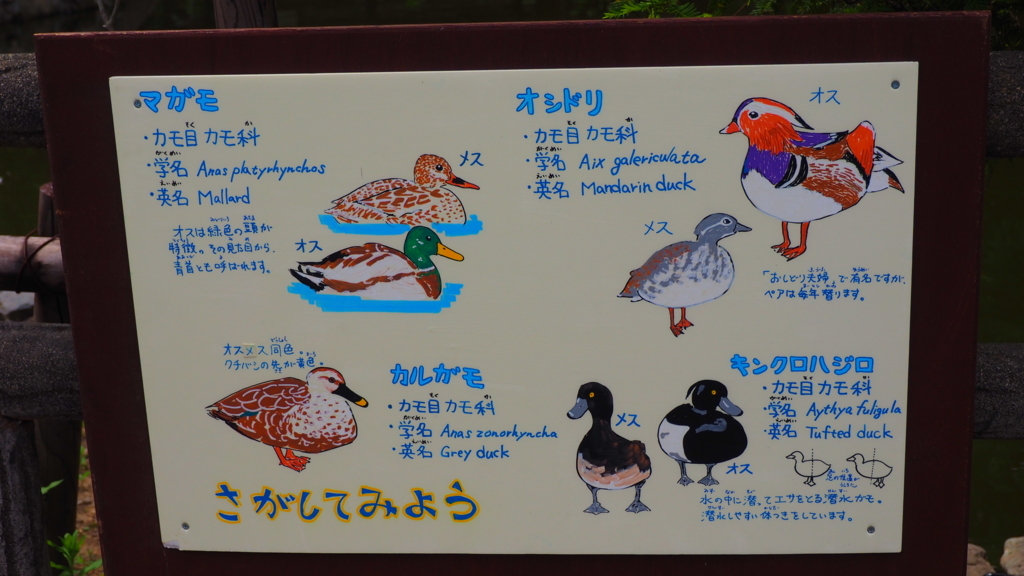 マガモ
・カモ目 カモ科
・学名 Anas platyrhynchos
・英名 Mallard
メス
オス
オスは緑色の頭が
特徴。その見た目から、
青首とも呼ばれます。
オシドリ
・カモ目 カモ科
・学名 Aix galericulata
・英名 Mandarin duck
オス
メス
「おしどり夫婦」で有名ですが、
ペアは毎年替ります。
オスメス同色。
クチバシの先が黄色。
カルガモ
・カモ目 カモ科
・学名 Anas zonorhyncha
・英名 Grey duck
キンクロハジロ
・カモ目 カモ科
・学名 Aythya fuligula
・英名 Tufted duck
メス
オス
水の中に潜ってエサをとる潜水カモ。
潜水しやすい体つきをしています。
さがしてみよう